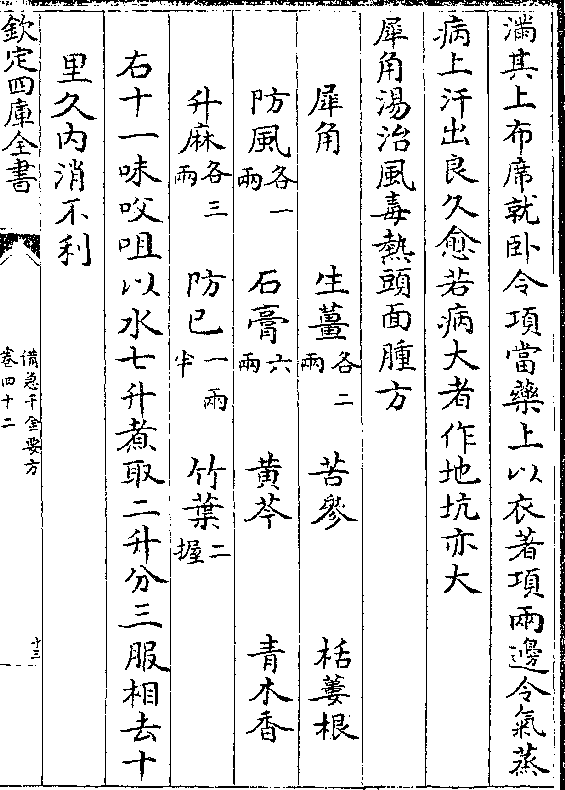 滿其上布席就卧令項當藥上以衣著項兩邊令氣蒸
病上汗出良久愈若病大者作地坑亦大
犀角湯治風毒熱頭面腫方
犀角 生薑各二兩 苦參 栝蔞根
防風各一兩 石膏六兩 黄芩 青木香
升麻各三兩 防已一兩半 竹葉二握
右十一味㕮咀以水七升煮取二升分三服相去十
里久內消不利
欽定四庫全書
備急千金要方
卷四十二
十三